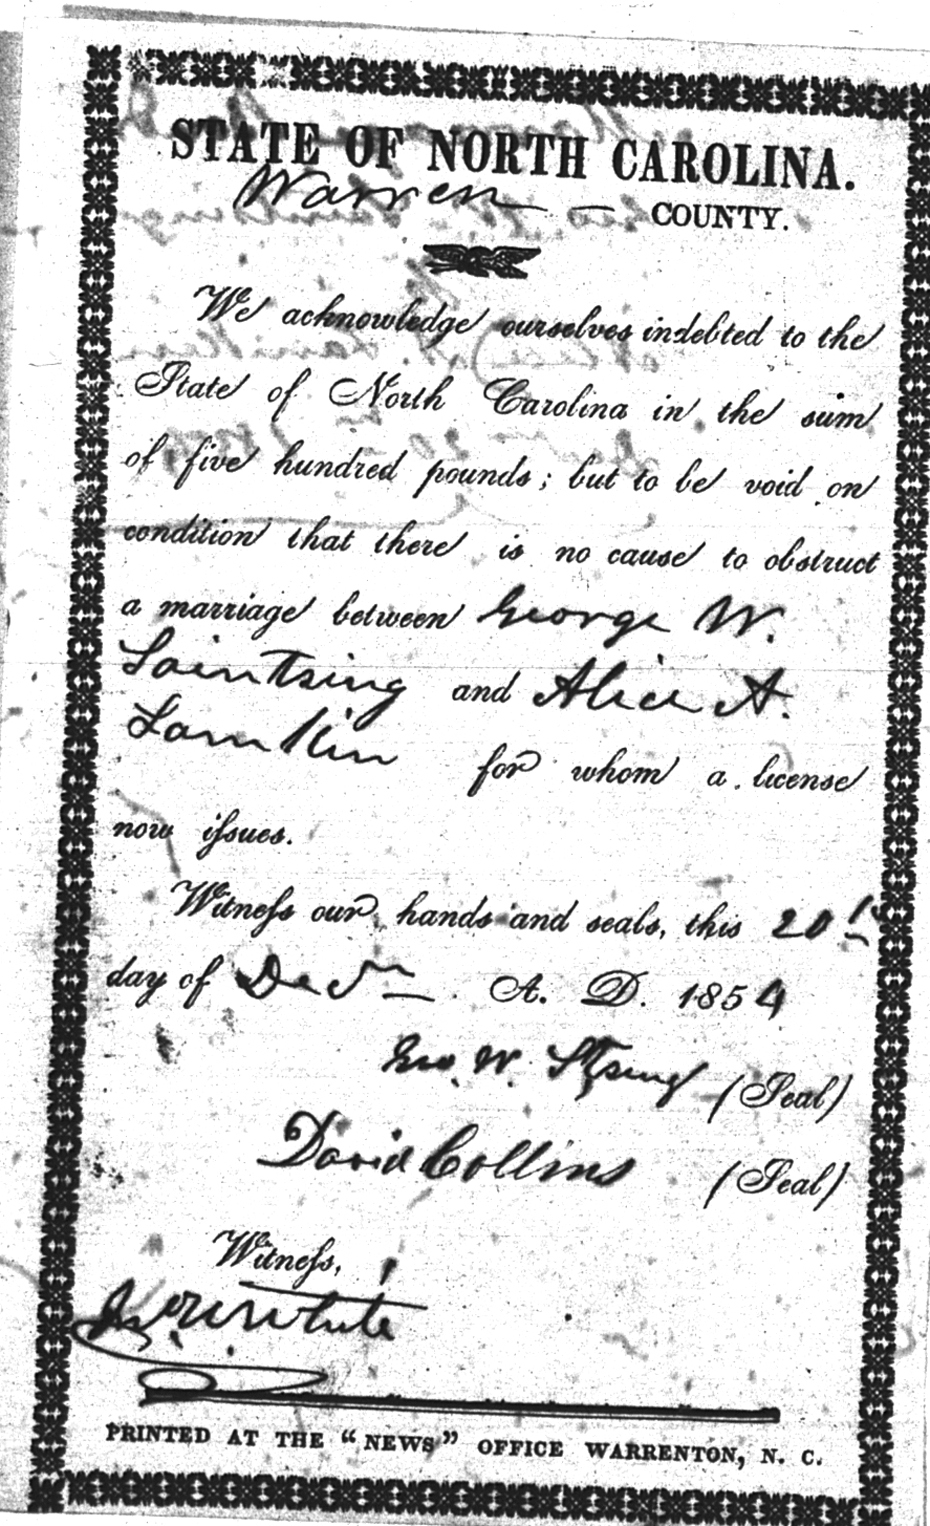 STATE OF NORTH CAROLINA.
Warren COUNTY.
We acknowledge ourselves indebted to the
State of North Carolina in the sum
of five hundred pounds; but to be void on
condition that there is no cause to obstruct
a marriage between George W.
Saintsing and Alice A.
Lamkin for whom a license
now issues.
Witness our hands and seals, this 20th
day of Decr A. D. 1854
Geo. W. Stsing (Seal)
David Collins (Seal)
Witness,
White
PRINTED AT THE "NEWS" OFFICE WARRENTON, N. C.